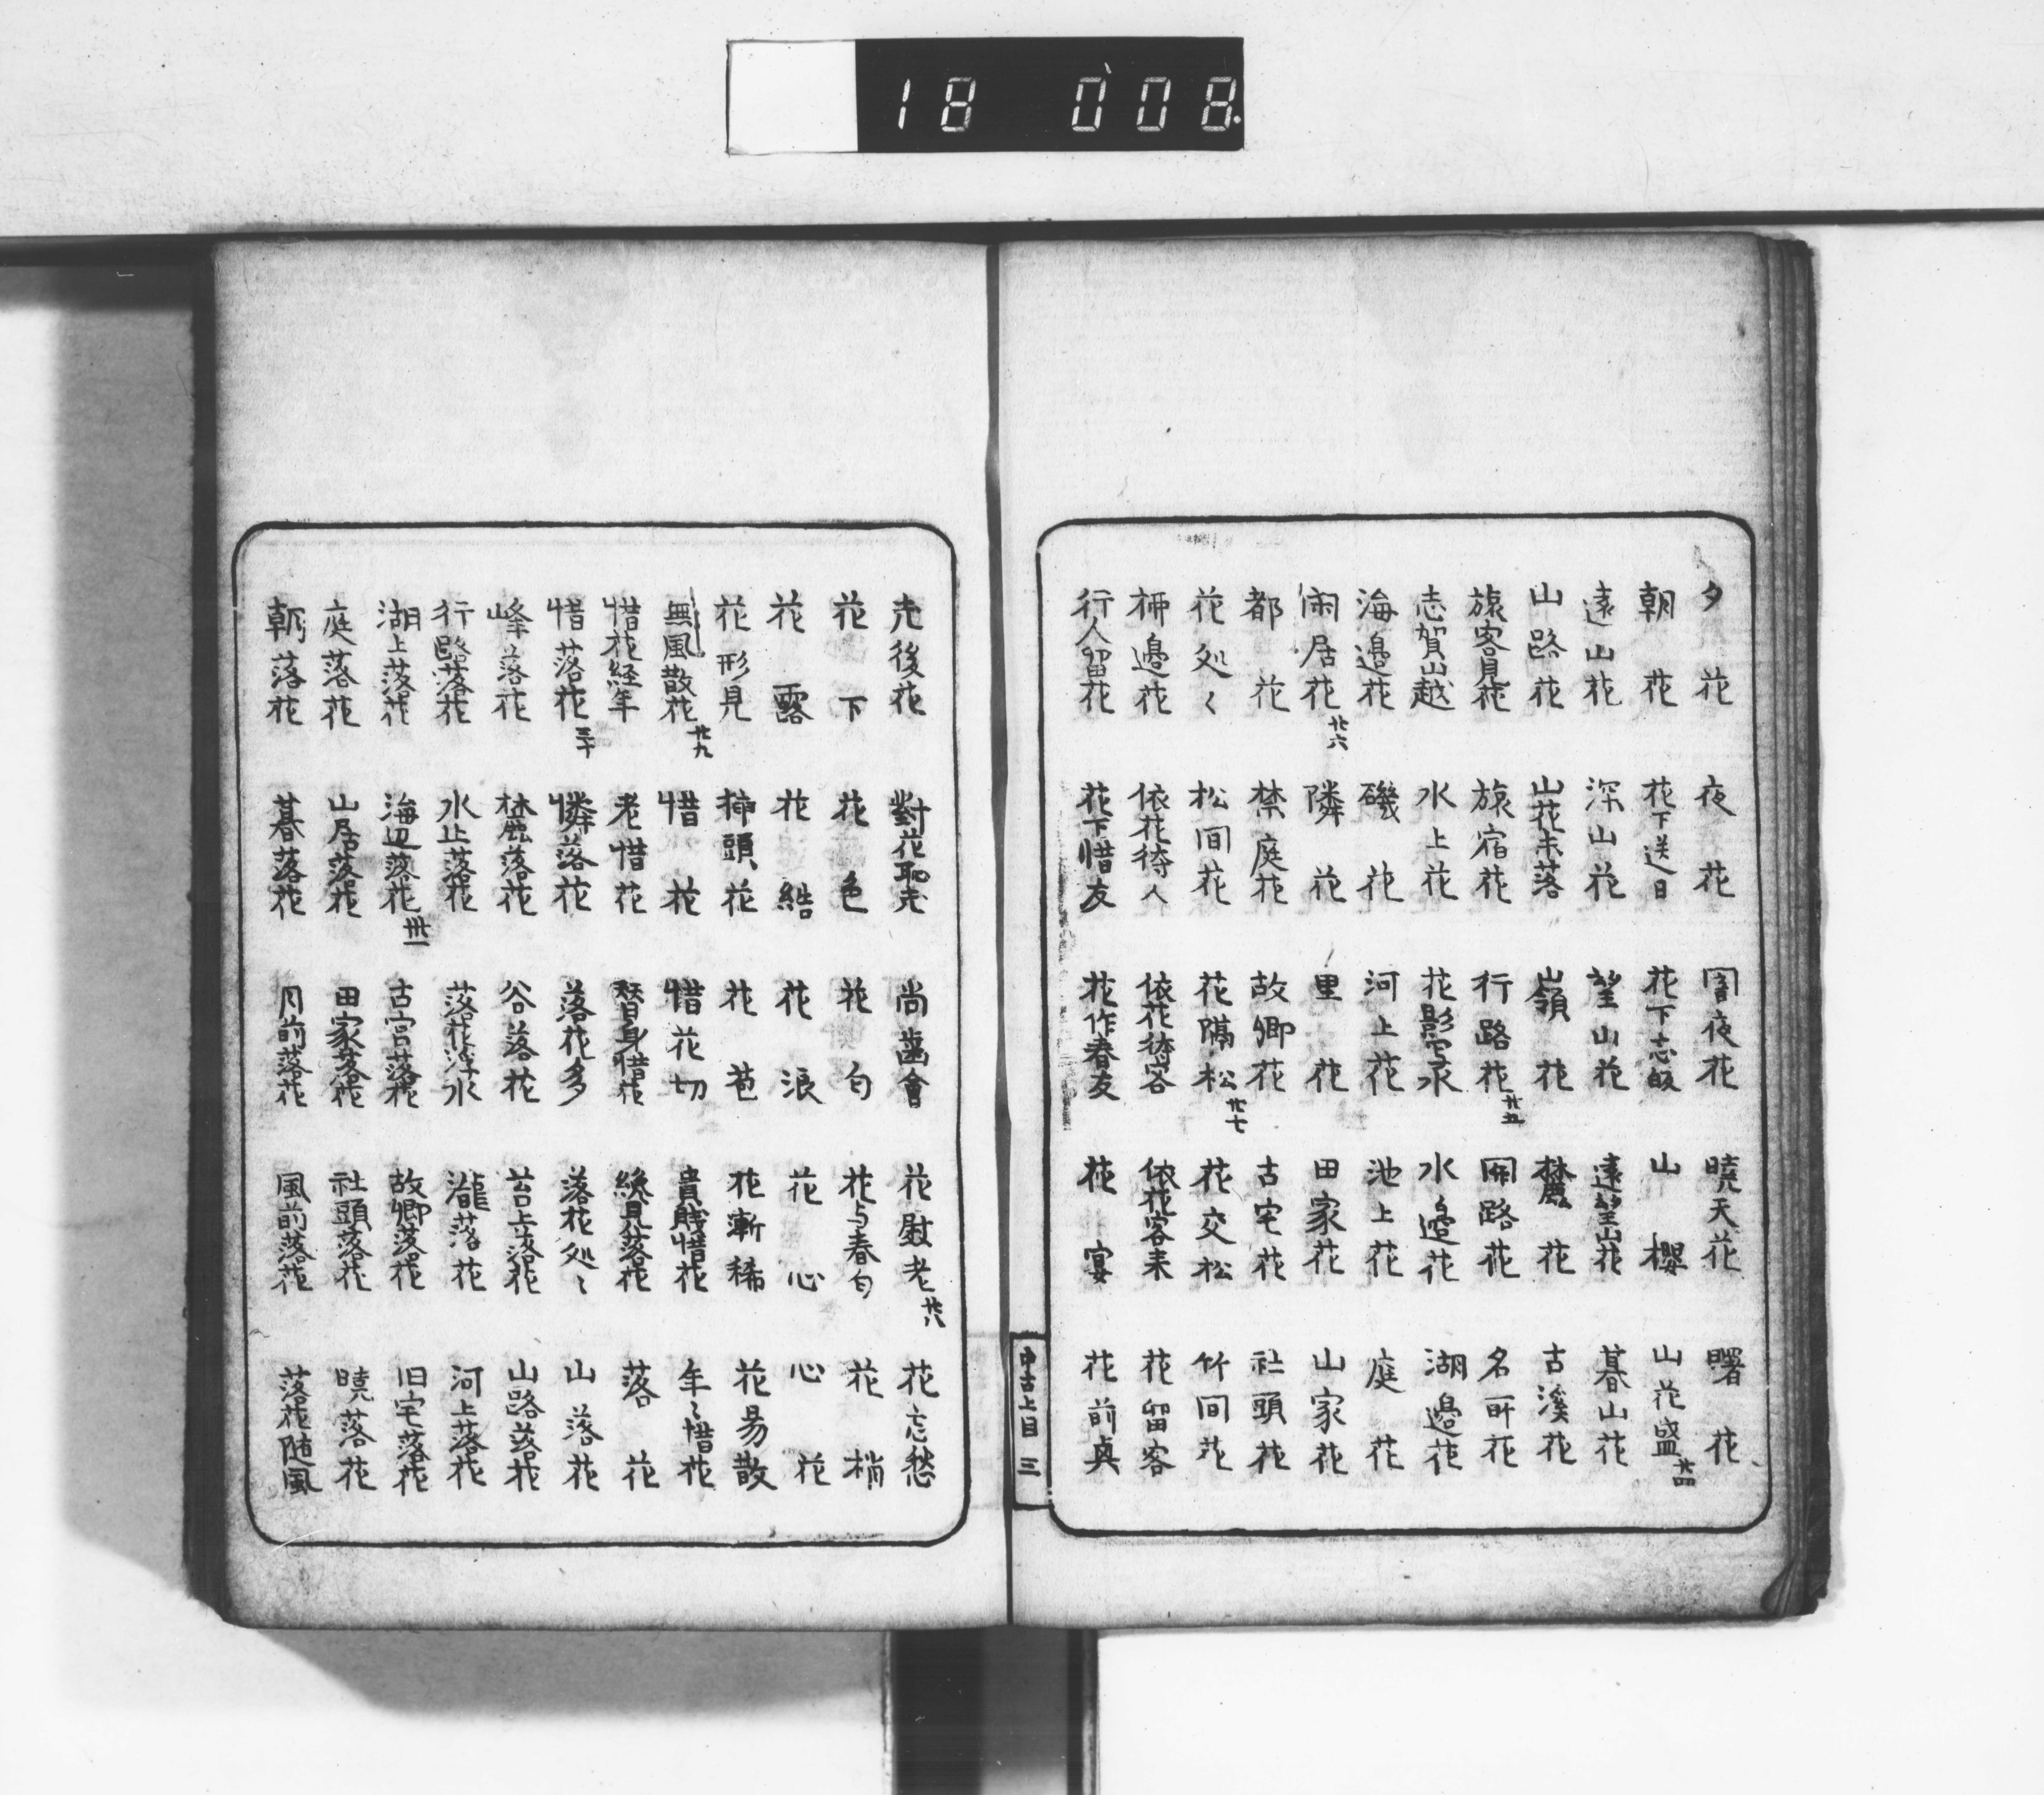 18 008
夕花 夜花 闇夜花 曉天花 曙花
朝花 花下送日 花下忘皈 山櫻 山花盛 廿四
遠山花 深山花 望山花 遠望山花 暮山花
山路花 山花未落 嶺花 麓花 古溪花
旅客見花 旅宿花 行路花 廿五 関路花 名所花
志賀山越 水上花 花影写水 水邉花 湖邉花
海邉花 磯花 河上花 池上花 庭花
閑居花 廿六 隣花 里花 田家花 山家花
都花 禁庭花 故郷花 古宅花 社頭花
花処〻 松間花 花隔松 廿七 花交松 竹間花
栁邉花 依花待人 依花待客 依花客来 花留客
行人留花 花下惜友 花作春友 花宴 花前興
中古上目 三
老後花 對花恥老 尚齒會 花慰老 廿八 花忘愁
花下 花色 花匂 花与春匂 花梢
花露 花結 花浪 花心 心花
花形見 揷頭花 花苞 花漸稀 花易散
無風散花 廿九 惜花 惜花切 貴賎惜花 年〻惜花
惜花経年 老惜花 替身惜花 纔見落花 落花
惜落花 三十 憐落花 落花多 落花処〻 山落花
峰落花 麓落花 谷落花 苔上落花 山路落花
行路落花 水上落花 落花浮水 瀧落花 河上落花
湖上落花 海辺落花 卅一 古宮落花 故郷落花 旧宅落花
庭落花 山居落花 田家落花 社頭落花 曉落花
朝落花 暮落花 月前落花 風前落花 落花随風